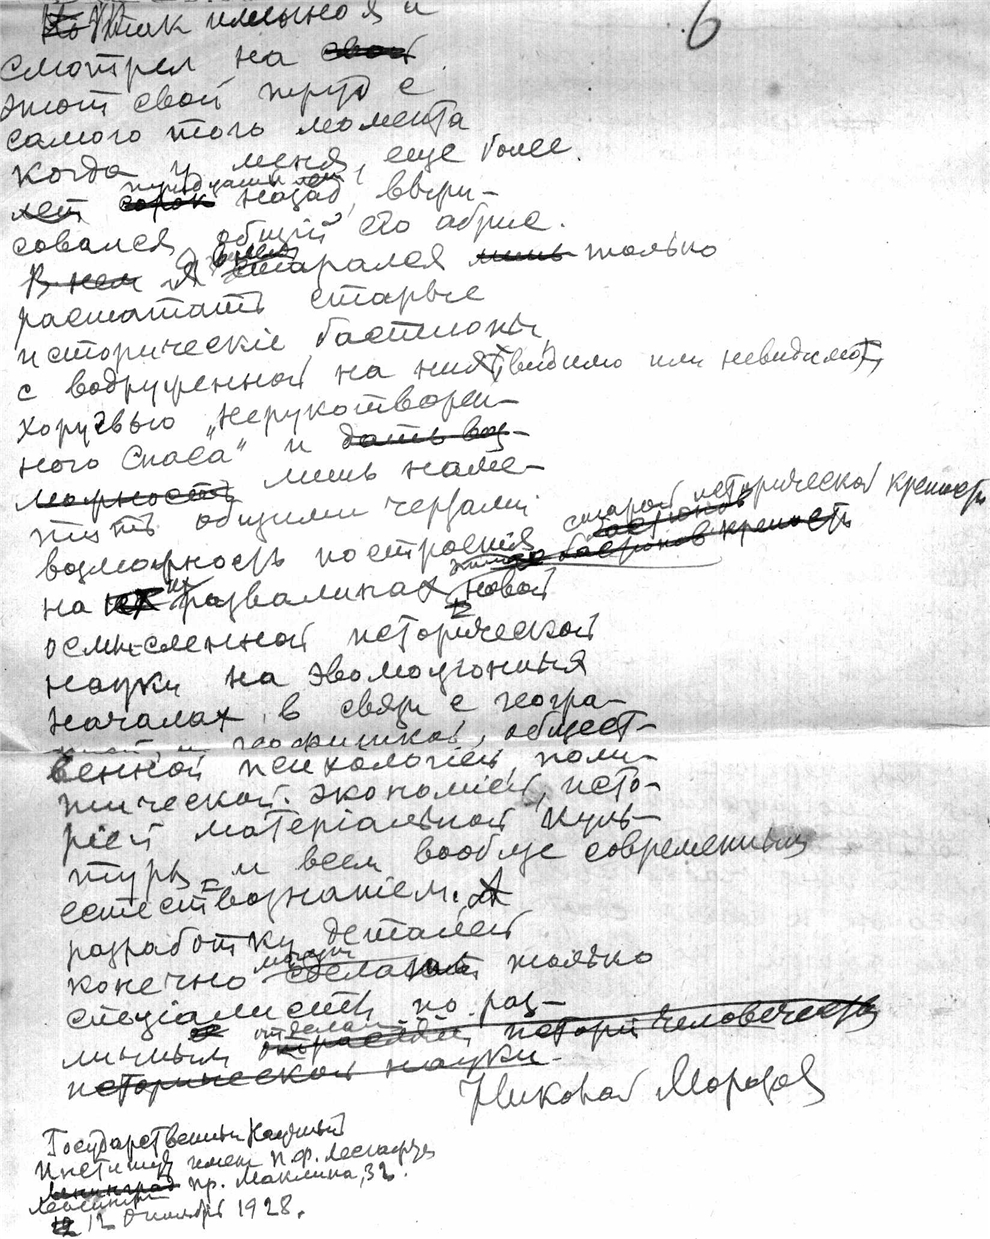 6
Так именно я и
смотрел на
этот свой труд с
самого того момента
когда у меня, еще более
пятидесяти лет
назад, выри-
совался общий его абрис.
Я старался только
расшатать старые
историческіе бастионы
с водруженной на них (видимо или невидимо),
хоругвью „Нерукотворен-
ного Спаса" и
лишь наме-
тить общими чертами
старой исторической крепости
возможность построения
на развалинах новой
осмысленной исторической
науки на эволюционных
началах, в связи с геогра-
геофизикой, общест-
венной психологіей, поли-
тической экономіей, исто-
ріей матеріальной куль-
туры и всем вообще современным
естествознаніем. А
разработку деталей
конечно могут сделать только
спеціалисты по раз-
личным отделам исторіи человечества
исторической науки.
Николай Морозов
Государственный Научный
Институт имени П.Ф. Лесгафта
Ленинград пр. Маклина, 32.
12 Октября 1928.